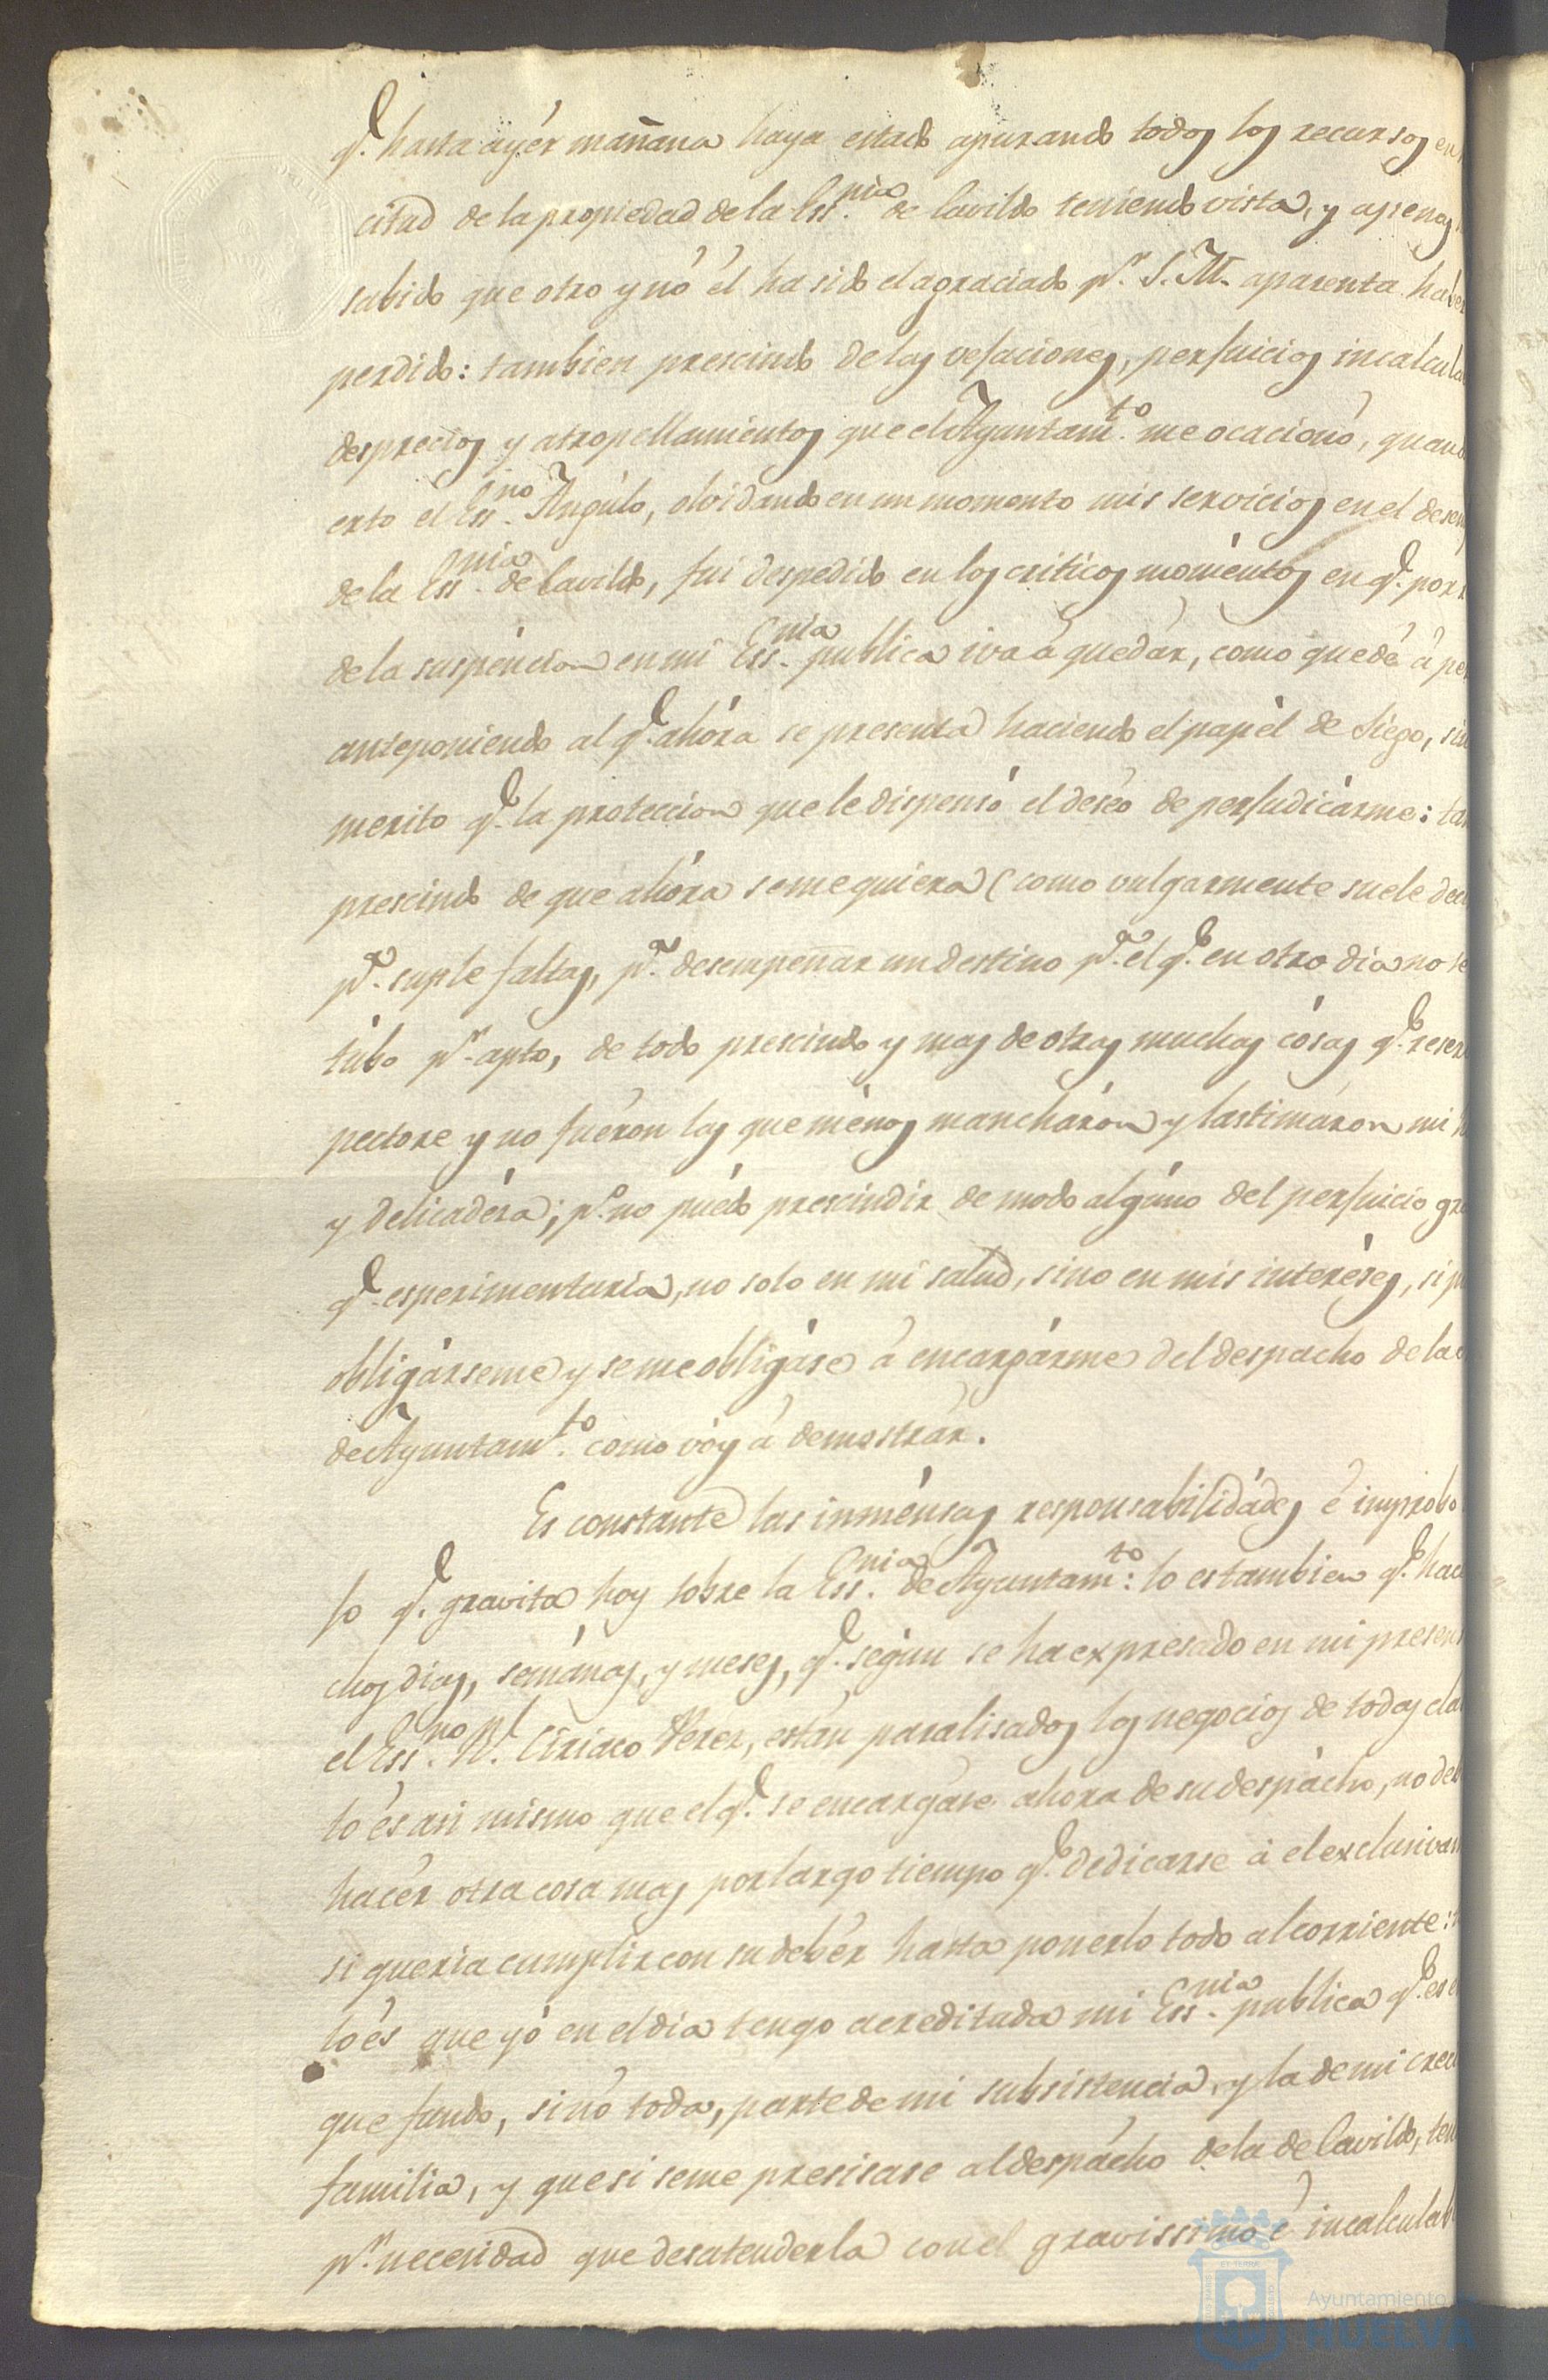 q.e hasta ayér mañana haya estado apurando todos los recursos en
citud de la propiedad de la Ess.nia de Cavildo teniendo vista, y apenas
sabido que otro y nó él ha sido el agraciado p.r S. M. aparenta haber
perdido: tambien prescindo de las vejaciones, perjuicios incalcula
desprecios y atropellamientos que el Ayuntam.to me ocacionó, quand
erto el Ess.no Angúlo, olvidando en un momento mis servicios en el desem
de la Ess.nia de Cavildo, fui despedido en los criticos moméntos en q.e por
de la suspéncion en mi Ess.nia publica iva á quedár, como quedé á per
anteponiendo al q.e ahóra se presenta haciendo el papél de Siego, sin
merito q.e la proteccion que le dispensó el deséo de perjudicárme: tam
prescindo de que ahóra se me quiera (como vulgarmente suele deci
p.a suple faltas, p.a desempeñar un destino p.a el q.e en otro dia no se
túbo p.r apto, de todo prescindo y mas de otras muchas cósas q.e reser
pectore y no fuéron las que ménos mancháron y lastimáron mi
y delicadésa; p.o no puédo prescindir de modo algúno del perjuicio gra
q.e esperimentaria, no solo en mi salud, sino en mis interéses, si p
obligárseme y se me obligáse á encargárme del despacho de la
de Ayuntam.to como vóy á demostrár.
Es constante las inménsas responsabilidádes é improbo
jo q.e gravita hoy sobre la Ess.nia de Ayuntam.to: lo es tambien q.e hace
chos dias, semánas, y meses, q.e según se ha expresado en mi presen
el Ess.no R.l Ciriaco Perez, están paralisados los negocios de todas cla
to és asi mismo que el q.e se encargáse ahora de su despácho, no deb
hacér otra cosa mas por largo tiempo q.e dedicarse á el exclusivam
si queria cumplir con su debér hasta ponerlo todo al corriente:
to és que yó en el dia tengo acreditada mi Ess.nia publica q.e es e
que fundo, sinó toda, parte de mi subsistencia, y la de mi crec
familia, y que si se me presisase al despácho de la de Cavildo, ten
p.r necesidad que desatenderla con el gravissimo é incalculab
Ayuntamiento de
HUELVA